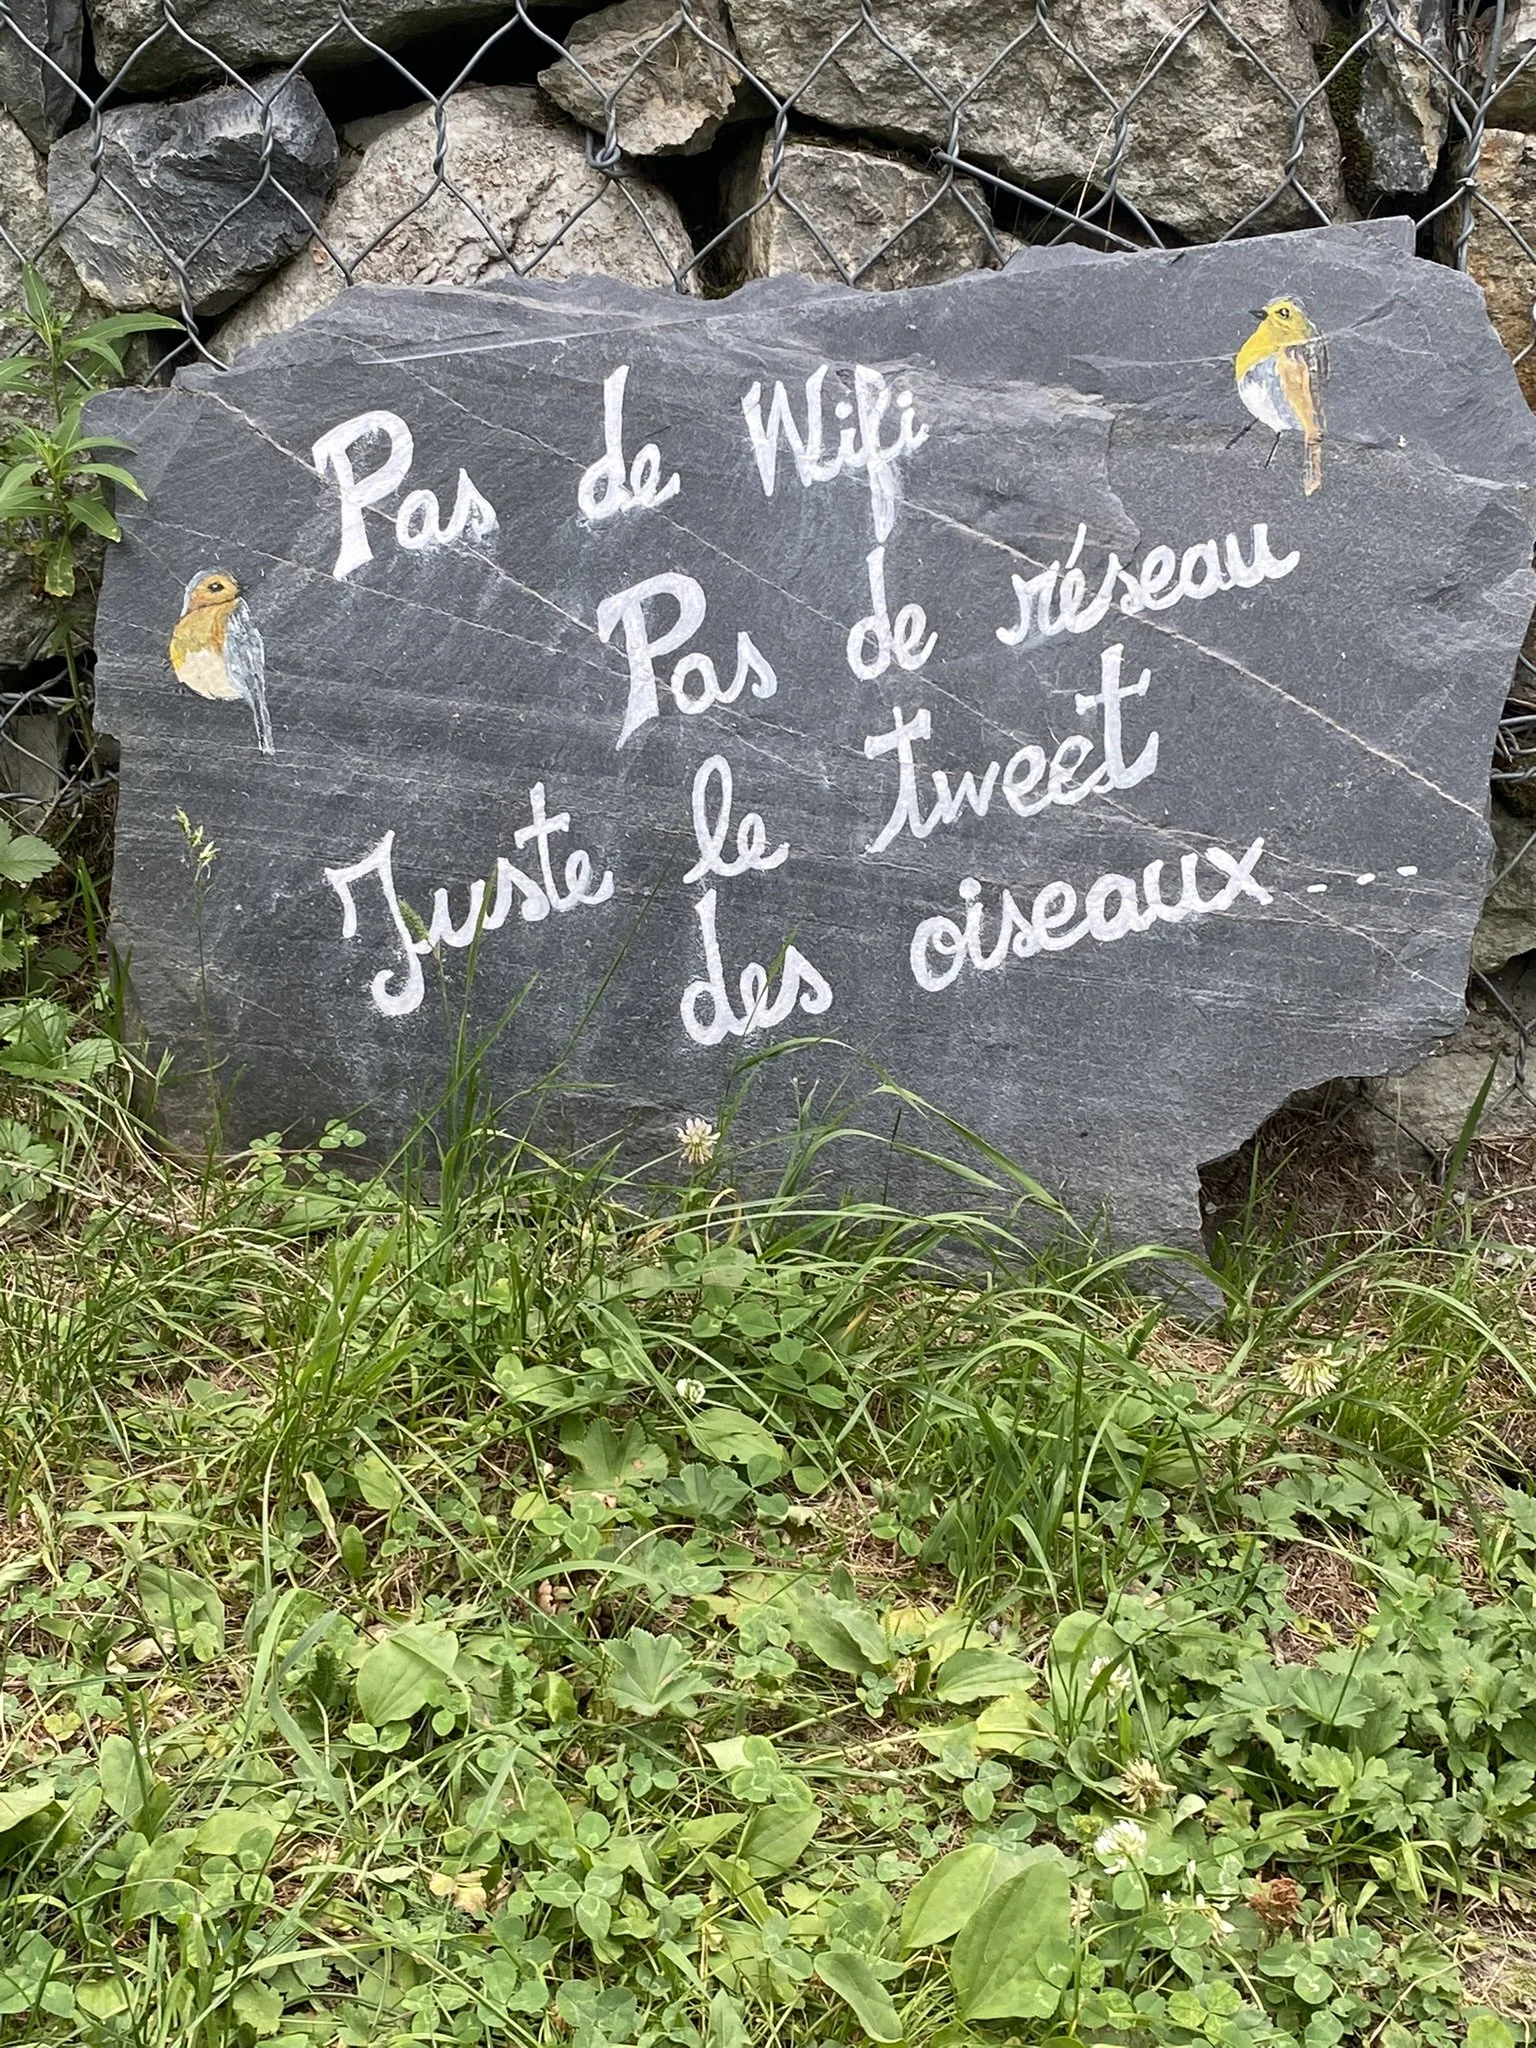 Pas de Wifi
Pas de réseau
Juste le tweet
des oiseaux....